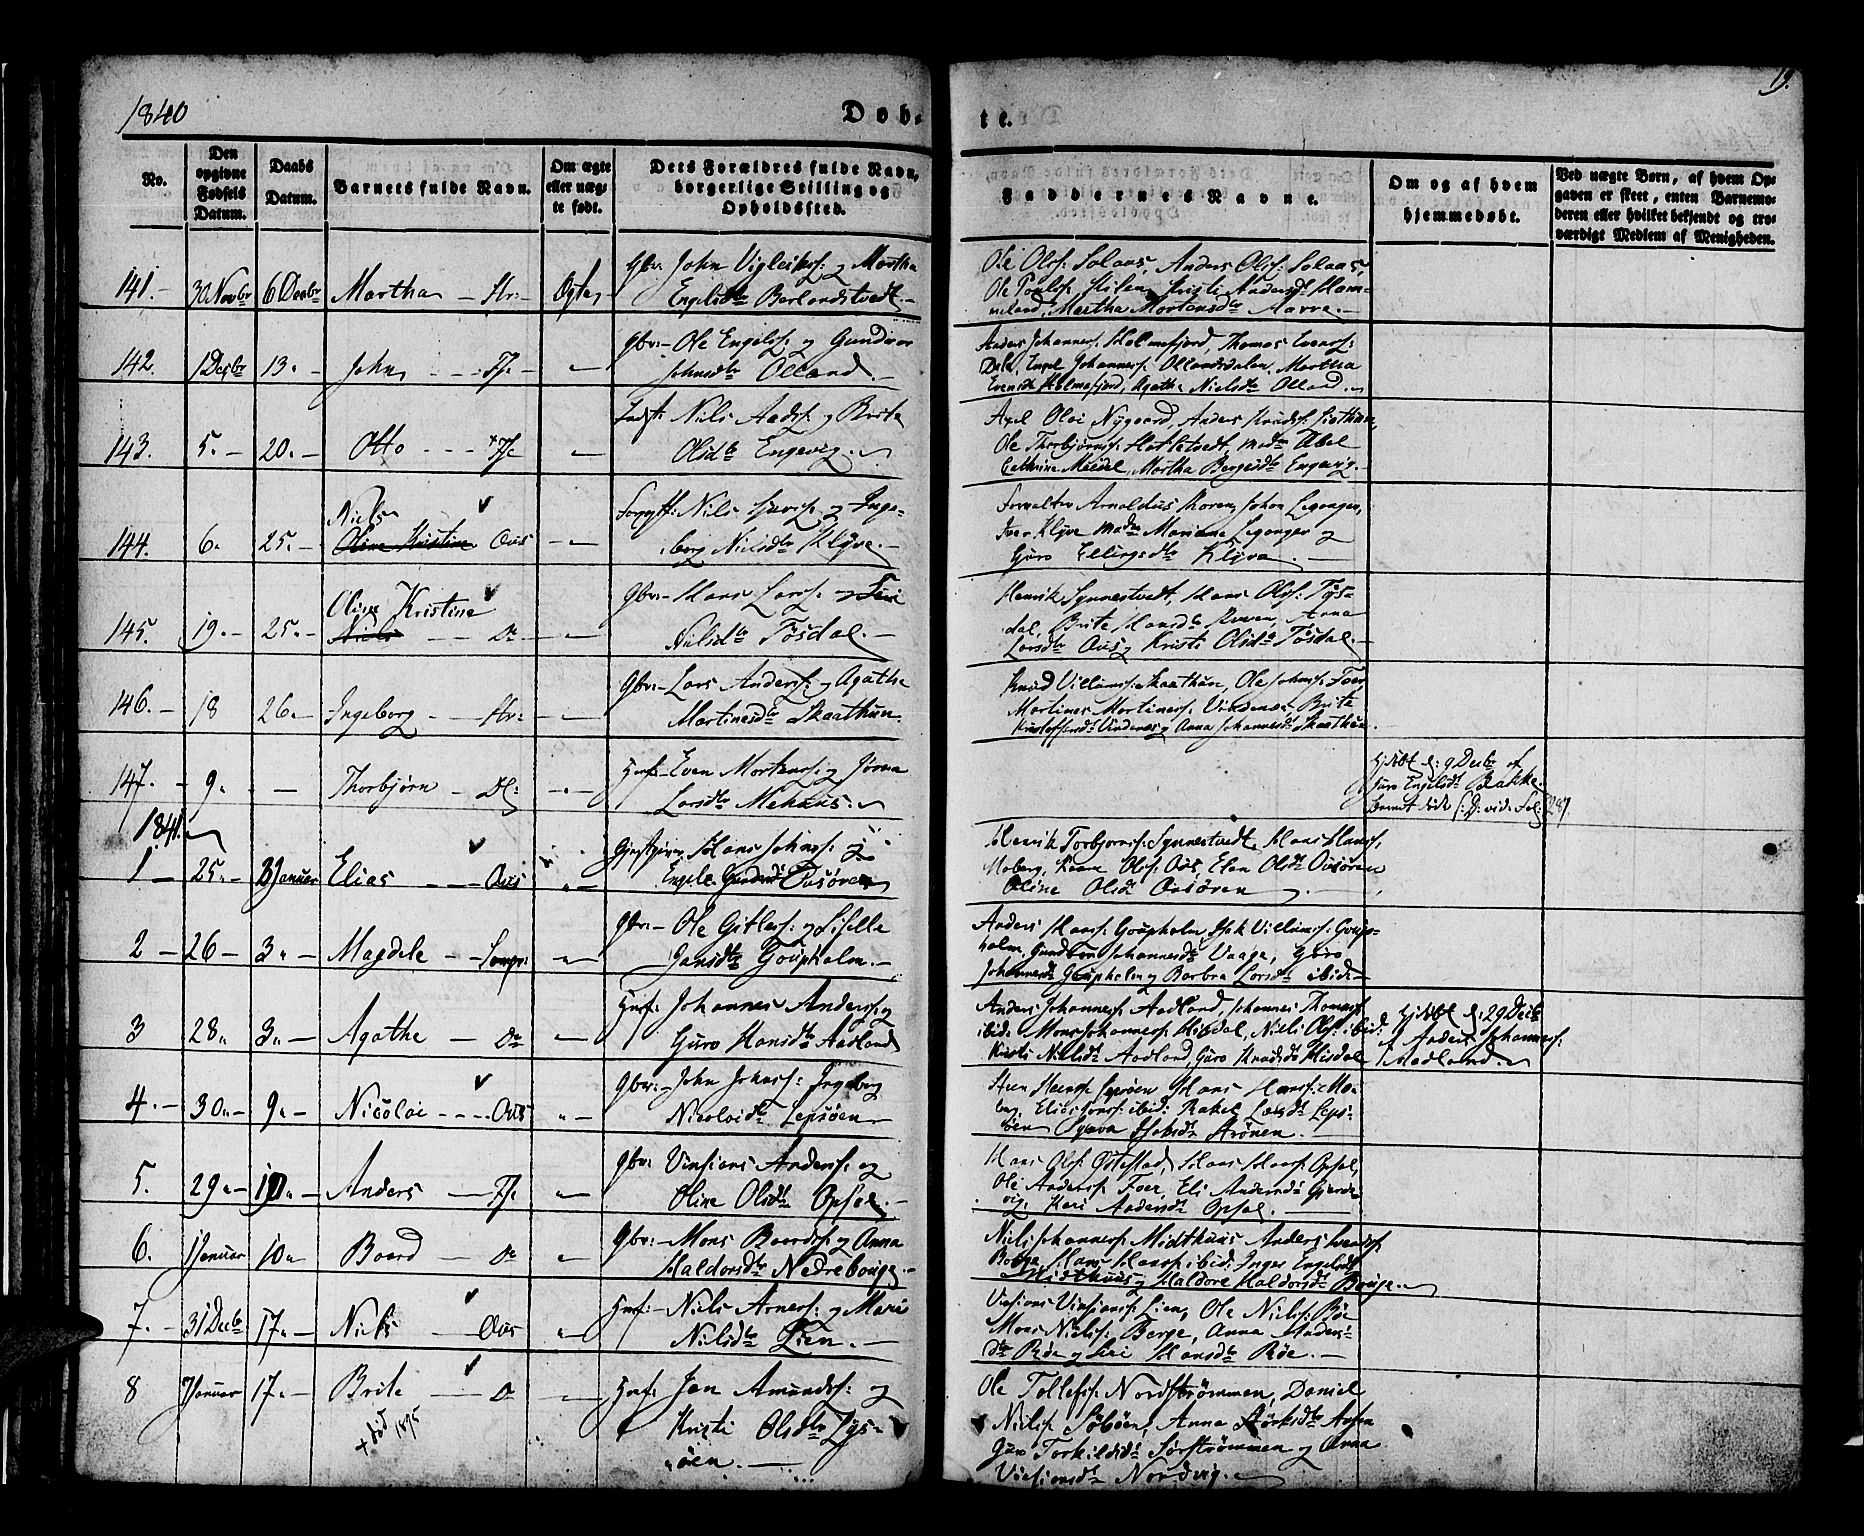 1840
Døb-
te.
19.
No.
Den
opgivne
Fødsels
Datum.
Daabs
Datum.
Barnets fulde Navn.
Om ægte
eller uæg-
te født.
Dets Forældres fulde Navn,
borgerlige Stilling og
Opholdssted.
Faddernes Navne.
Om og af hvem
hjemmedøbt.
Ved uægte Børn, af hvem Op-
gaven er skeet, enten Barnemo-
deren eller hvilket bekjendt og tro-
værdigt Medlem af Menigheden.
141. 30 Novbr 6 Decbr Martha Str: Ægte
Gbr: John Vigleiks: og Martha
Engelsdtr Borlandstvedt.
Ole Ols: Solaas, Anders Ols: Solaas,
Ole Pouls: Kilen, Kristi Andersdt Ham-
meland, Martha Mortensdtr Aarre.
142. 1 Decbr 13. John
Gbr: Ole Engels: og Gundvor
Johnsdtr Olland.
Anders Johannes: Holmefjord, Thomas Evens:
Dale, Engel Johannes: Ollandsdalen, Martha
Evensdt Holmefjord, Agathe Nielsdtr Olland.
143. 5. 20. Otto
Niels Aads: og Brita
Olsdtr Engevig.
Axel Oloi Nygaard, Anders Knuds:
Ole Thorbjørns: Hatletvedt, Madm Abel
Cathrine Meidel, Martha Børgesdtr Engevig.
144. 6. 25. Niels
Oline Kristine Ous
Niels og Inge-
borg Nielsdtr Klyve.
Forvalter Arnoldus Koren, Johan Leganger,
Iver Klyve Madm Mariane Leganger og
Guro Ellingsdtr Klyve
145. 19. 25. Oline Kristine
Niels Do
Gbr: Hans Lars: og Siri
Nielsdtr Tøsdal.
Henrik Synnestvedt, Hans Ols: Tøs-
dal, Brite Hansdtr Røven, Anna
Larsdtr Ous og Kristi Olsdtr Tøsdal.
146. 18 26. Ingeborg Str:
Gbr: Lars Anders: og Agathe
Martinesdtr Skaathun.
Knud Villums: Skaathun, Ole Johns: Foer,
Martines Martines: Vindenes, Brite
Vindenes og Anna Johannesdt Skaathun.
147. 9. Thorbjørn
Huusf: Even Mortens: og Jørna
Larsdtr Mehuus.
Hjdøbt d: 9 Decbr af
Guro Engelsdt Bakke.
1841.
1 25. 3 Januar Elias Ous
Gjestgiver Hans Johns: og
Engele Gundersdt Ousøren
Henrik Torbjørns: Synnestvedt, Hans Hans:
Moberg, Ols: Ous, Elen Olsdt Ousøren
Oline Olsdt Ousøren
2 26 3. Magdele
Gbr: Ole Gitles: og Siselle
Jansdtr Goupholm.
Anders Hans: Goupholm, Isak Villums: Goup-
holm, Gundvor Johannesdt Vaage, Guro
Johannesdt Goupholm og Barbra Larsdt ibid:
3 28. 3. Agathe Do
Huusf: Johannes Anders: og
Guro Hansdtr Aadland
Anders Johannes: Aadland, Johannes Thomas:
ibid: Mons Johannes: Hisdal, Niels Ols: ibid:
Kirsti Nielsdt Aadland, Guro Knudsdt Hisdal
Hjdøbt d: 29 Decbr
af Anders Johannes:
Aadland.
4. 30. 9. Nicolai Ous
Gbr: John Johns: Ingeborg
Nicolaidtr Lepsøen
Hans: Lepsøen Hans Hans: Mo-
berg, Elias Hans: ibid: Rakel Larsdt Leps-
øen
5. 29. 10. Anders
Gbr: Vinsians Anders: og
Oline Olsdtr Opsal.
Hans Ols: Østestad, Hans Hans: Opsal,
Ole Anders: Foer, Eli Andersdt Gjerde-
vig, Kari Andersdt Opsal.
6. 1 Januar 10. Baard Do
Gbr: Mons Baards: og Anna
Haldorsdtr Nedrebouge.
Niels Johannes: Midthuus, Anders
Bouge, Hans Hans: ibid: Inger Engelsdt
Midthuus og Haldore Haldorsdtr Bouge.
7. 31 Decbr 17. Niels Ous
Huusf: Niels Arnes: og Mari
Nielsdtr Lien.
Vinsians Vinsians: Lien, Ole Niels: Røe
Mons Niels: Berge, Anna Anders-
dtr Røe og Siri Hansdtr Røe.
8 7 Januar 17. Brite Do
Huusf: Jan Amunds: og
Kristi Olsdtr Lys-
øen.
+ død 1895
Ole Tollefs: Nordstrømmen, Daniel
Niels: Søbøen, Anna
Guro Torkildsdt Sørstrømmen og Anna
Vinsiansdt Nordvig.